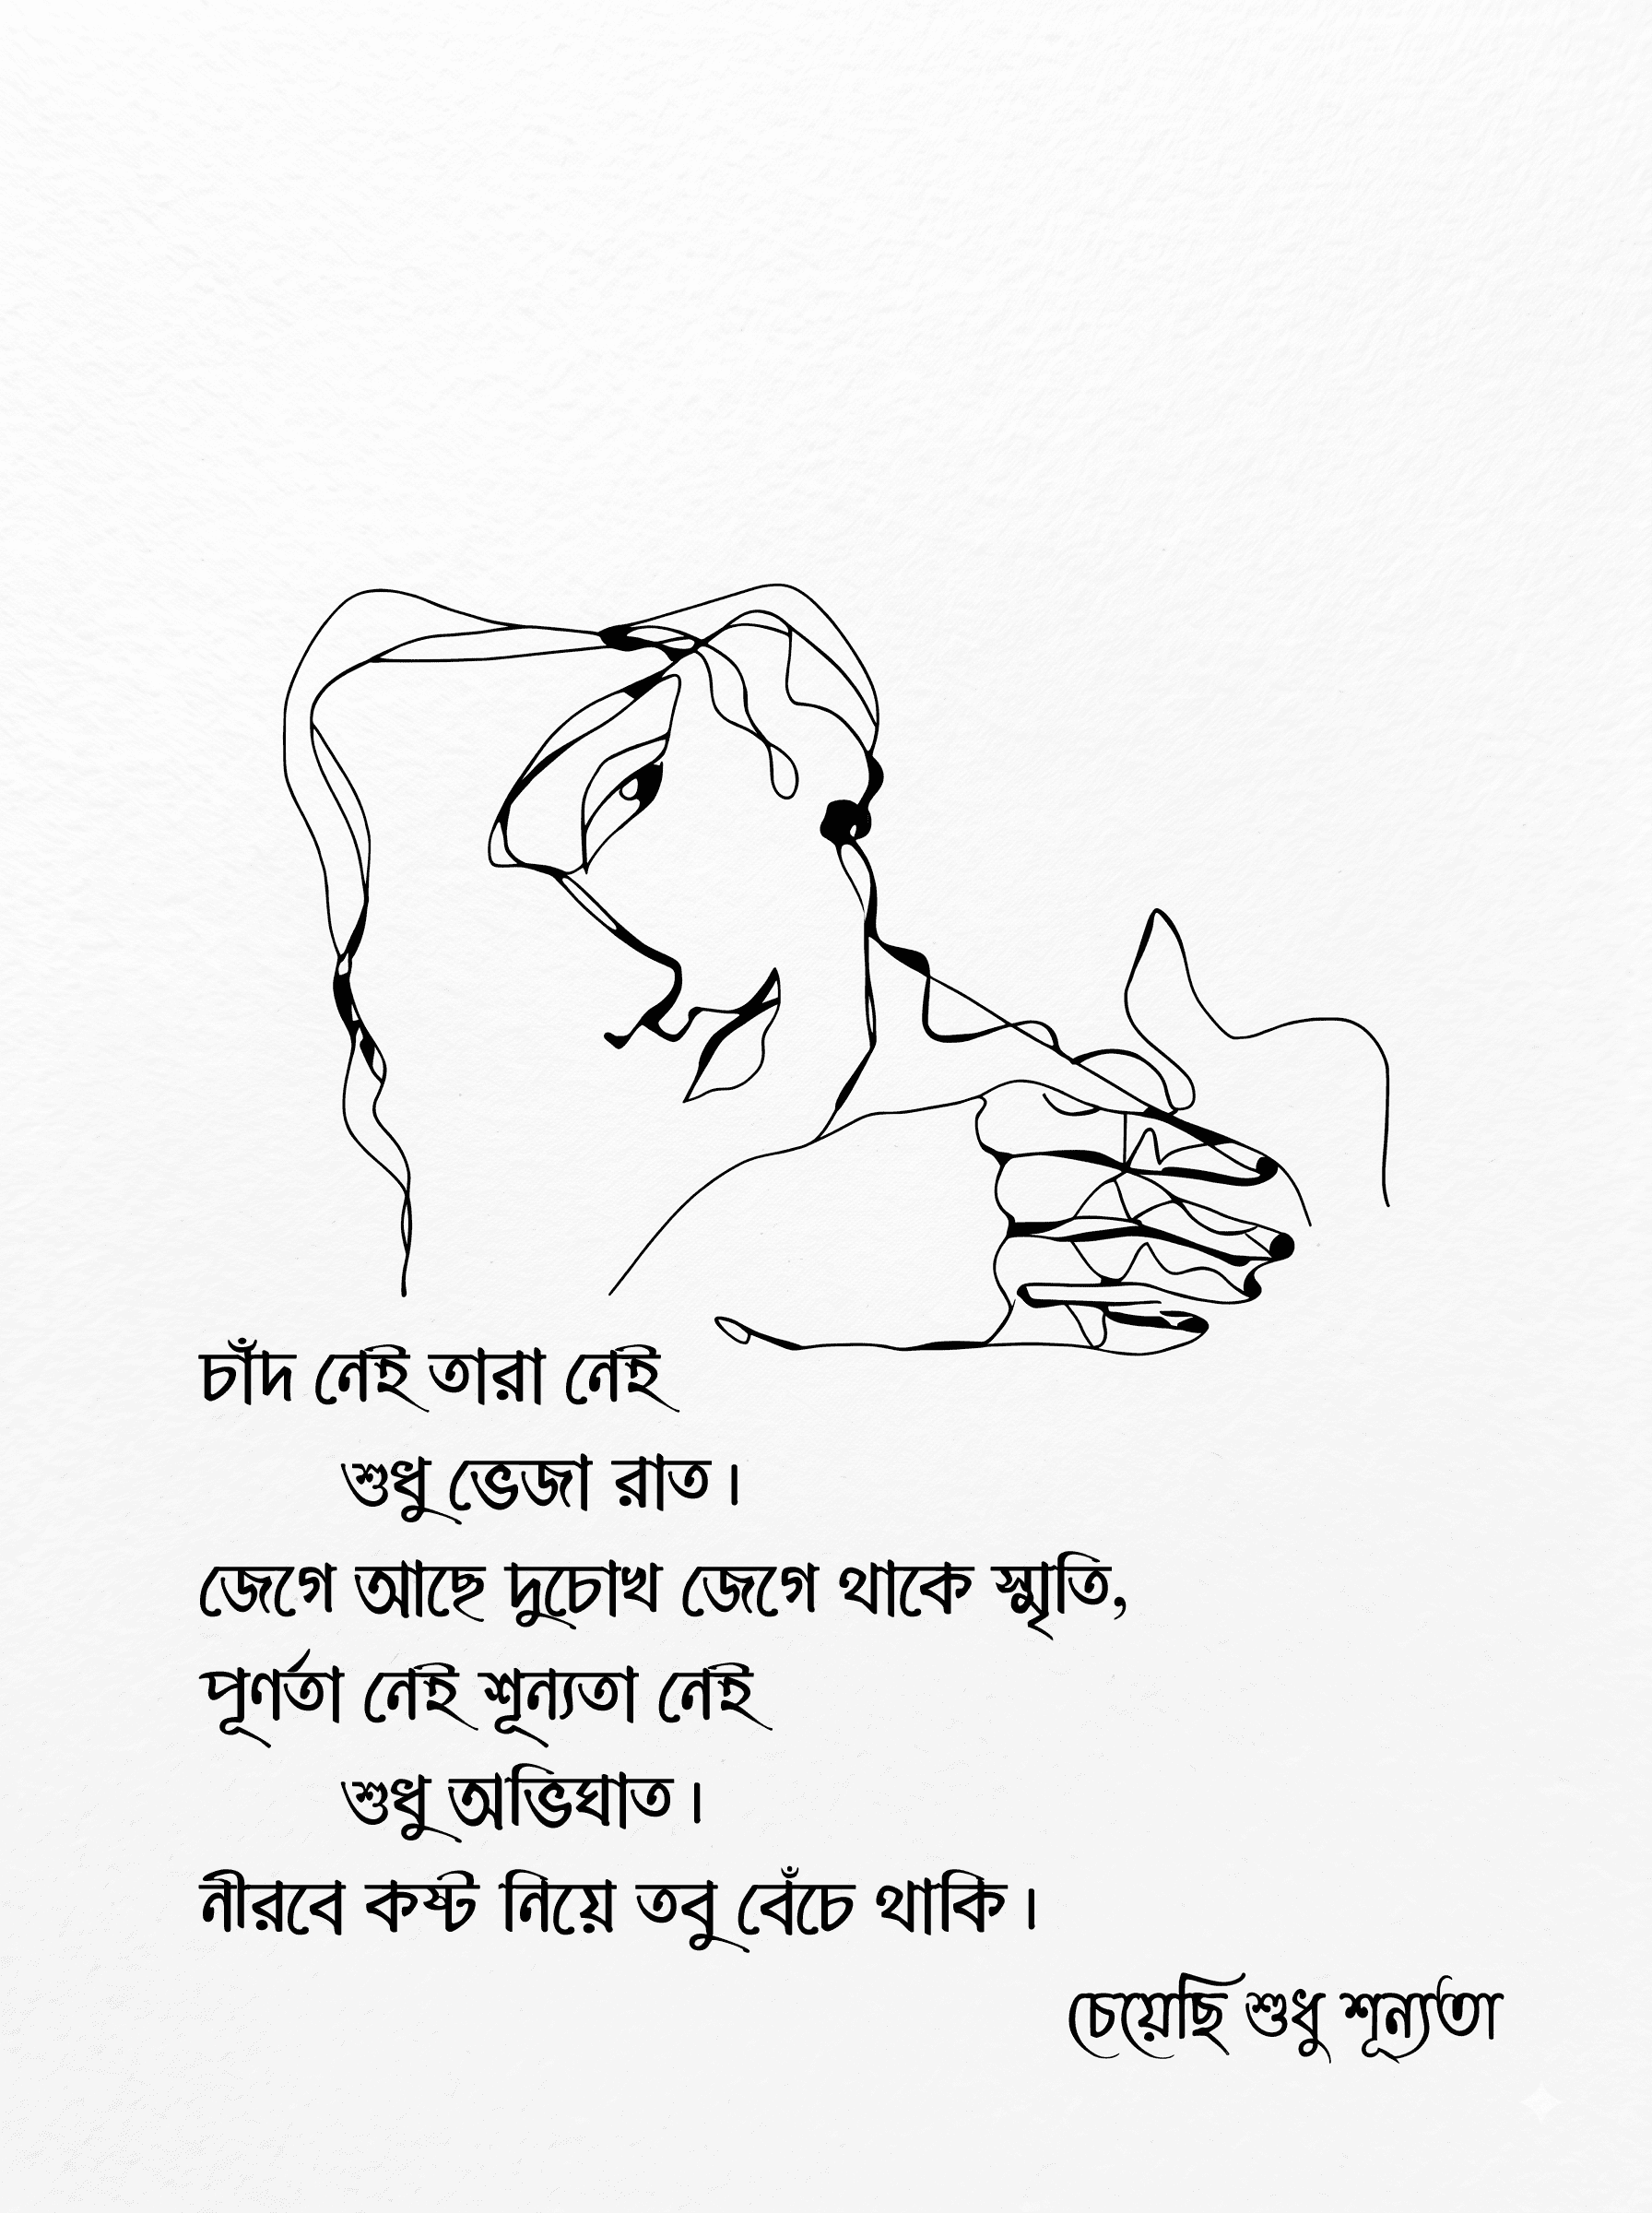 চাঁদ নেই তারা নেই
শুধু ভেজা রাত।
জেগে আছে দুচোখ জেগে থাকে স্মৃতি,
পূর্ণতা নেই শূন্যতা নেই
শুধু অভিঘাত।
নীরবে কষ্ট নিয়ে তবু বেঁচে থাকি।
চেয়েছি শুধু শূন্যতা